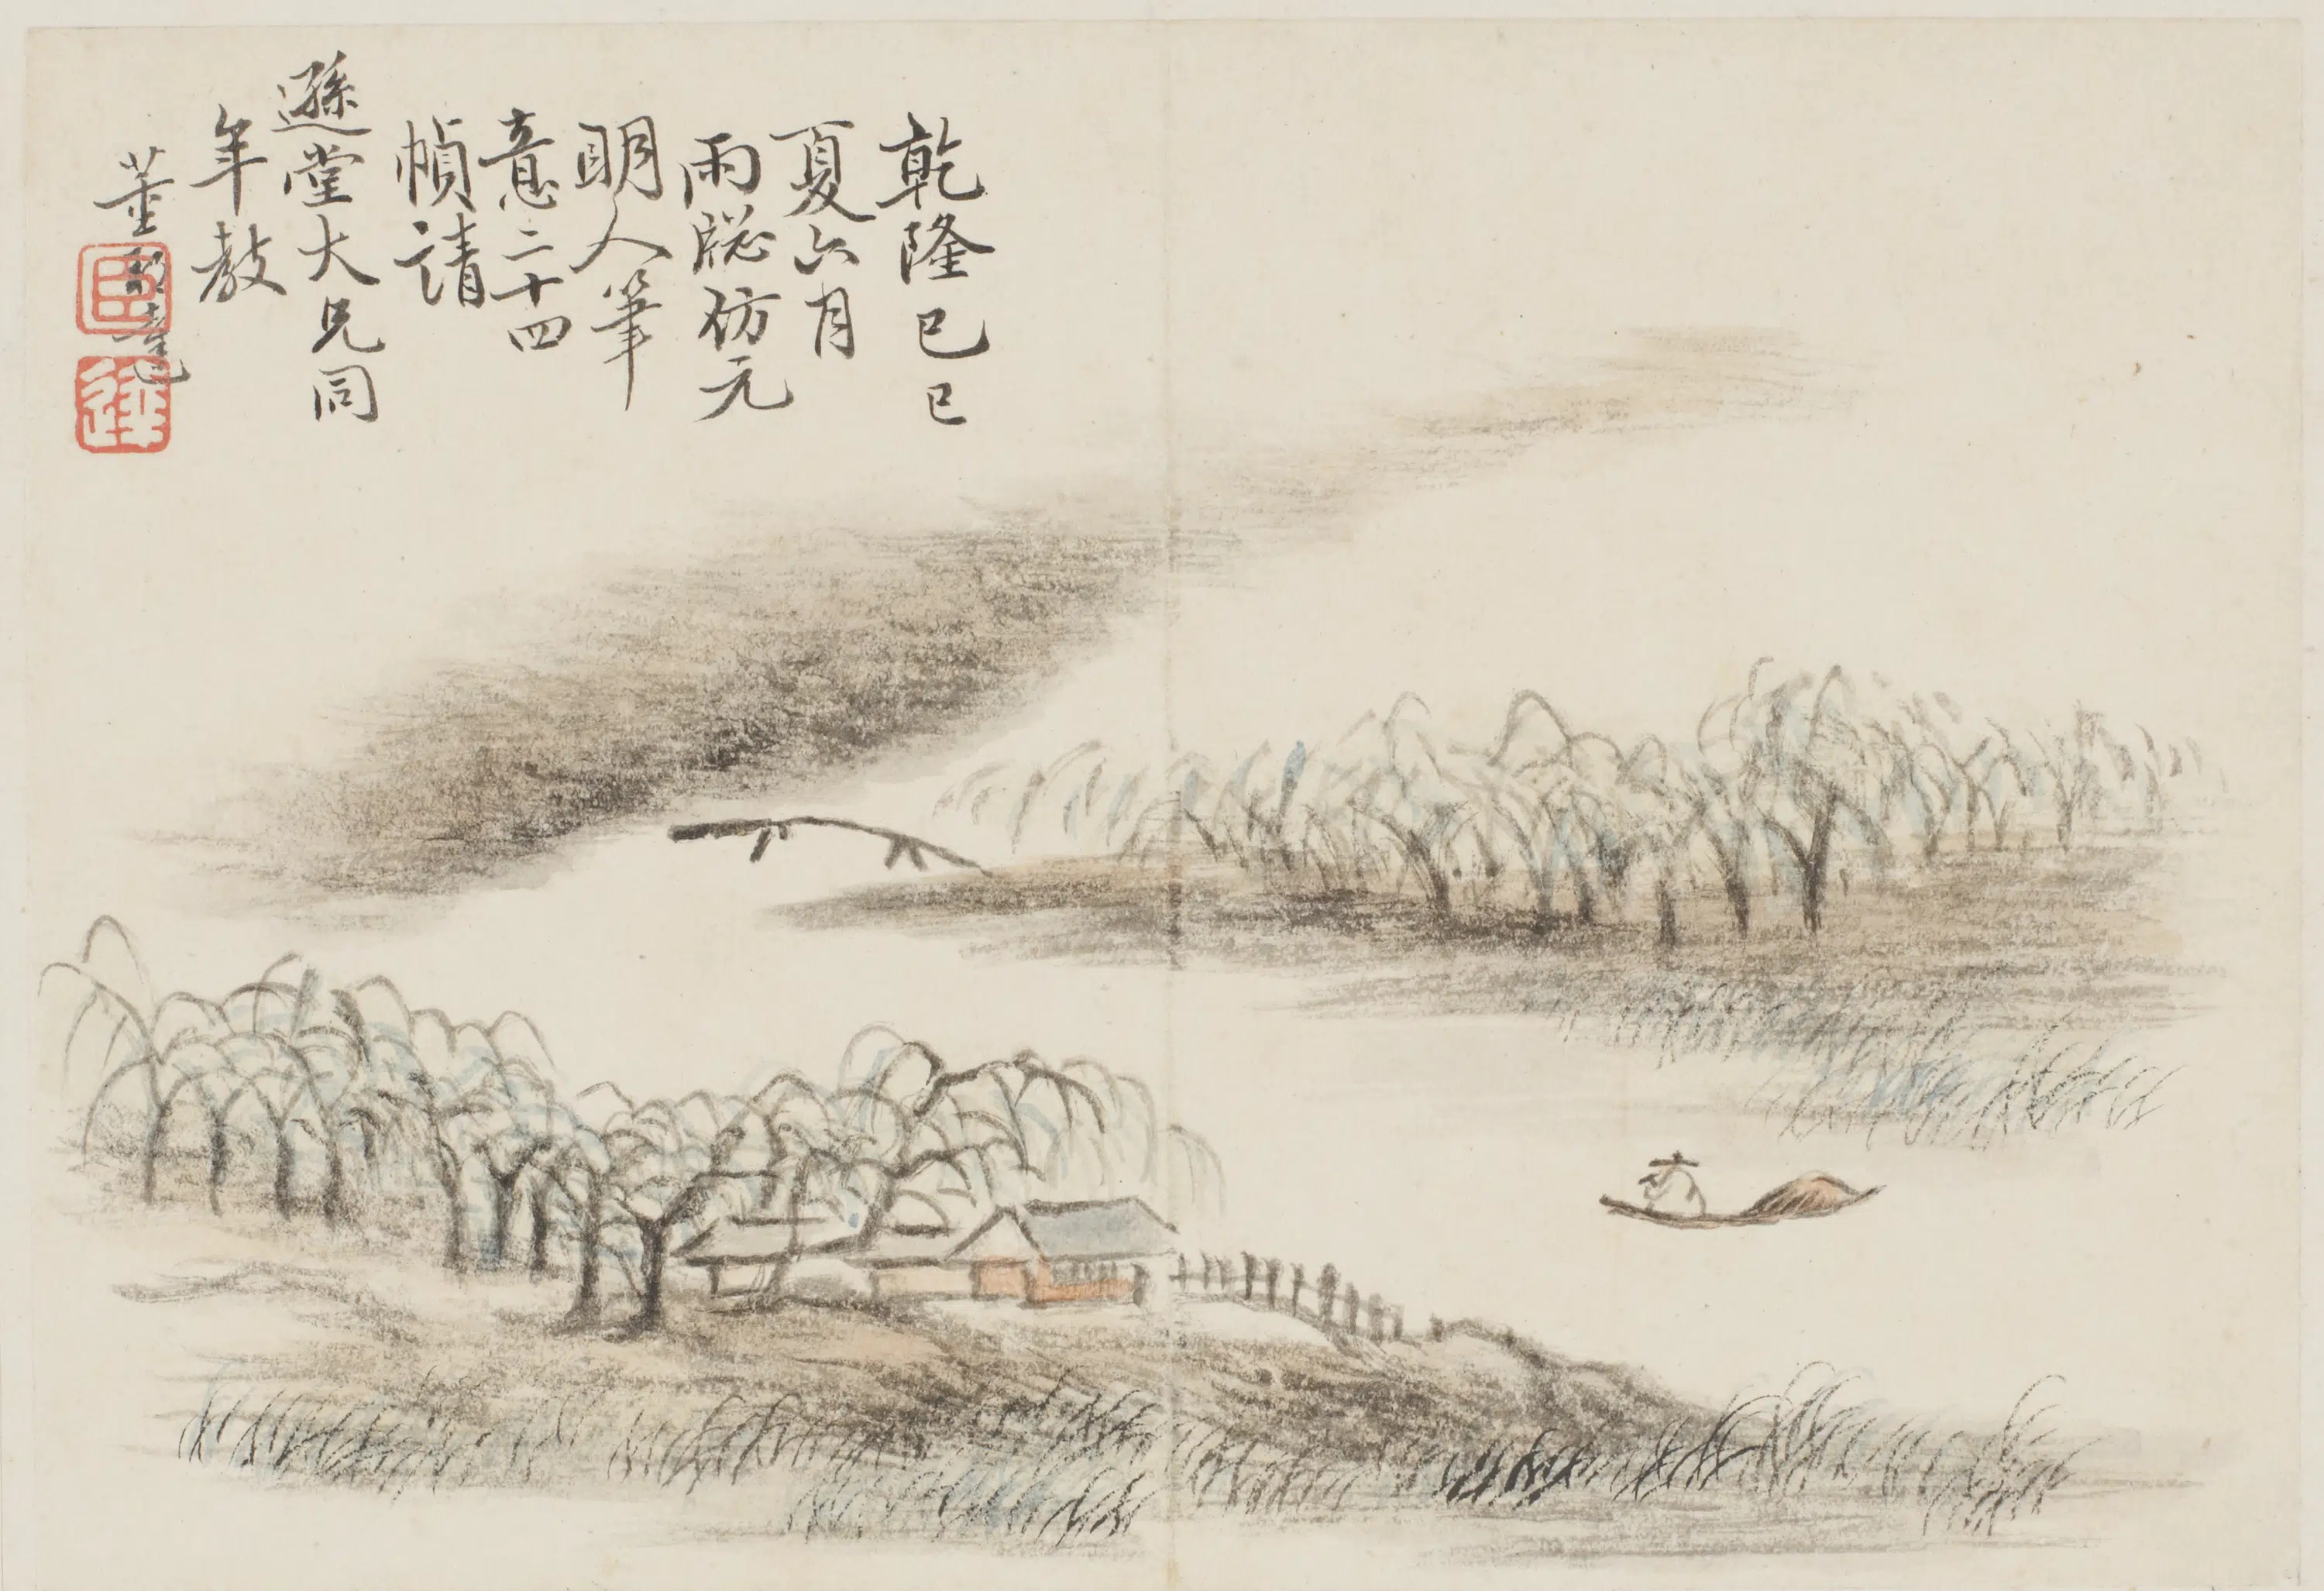 乾隆己巳
夏六月
雨牕仿元
明人筆
意二十四
幀請
遜堂大兄同
年教
董邦達
臣
達